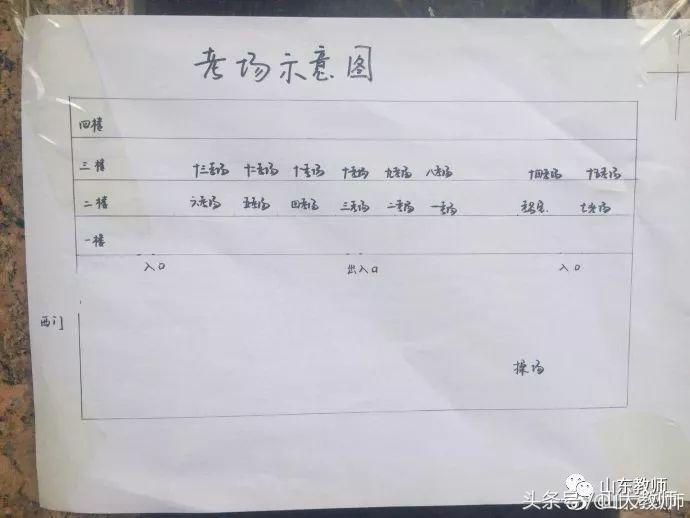 考场示意图
四楼
三楼 十三考场 十二考场 十一考场 十考场 九考场 八考场 十四考场 十五考场
二楼 六考场 五考场 四考场 三考场 二考场 一考场 七考场
一楼
入口 出入口 入口
西门
操场
山东教师
头条号/山东教师